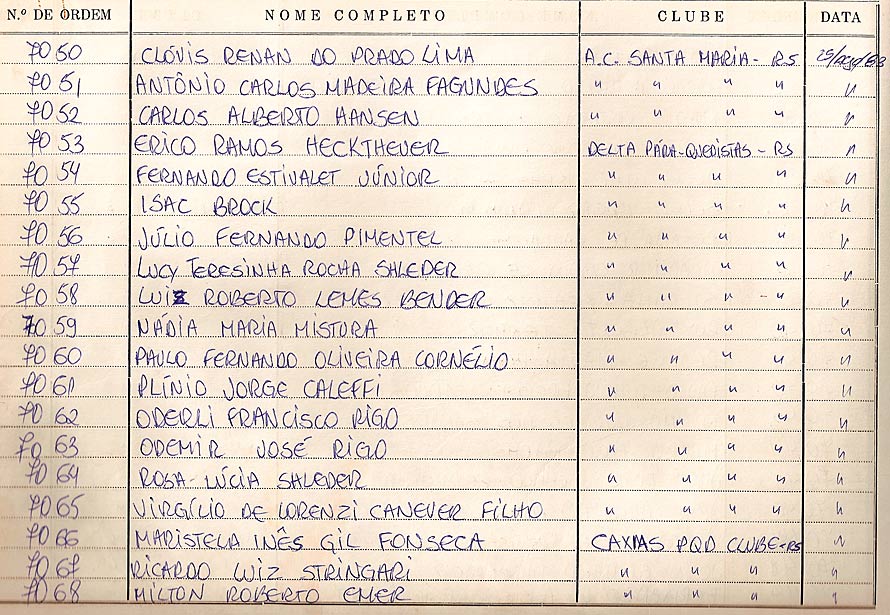 N.º DE ORDEM NOME COMPLETO CLUBE DATA
7050 CLÓVIS RENAN DO PRADO LIMA A.C. SANTA MARIA - RS
7051 ANTÔNIO CARLOS MADEIRA FAGUNDES " " " " "
7052 CARLOS ALBERTO HANSEN " " " " "
7053 ERICO RAMOS HECKTHEUER DELTA PÁRA-QUEDISTAS - RS "
7054 FERNANDO ESTIVALET JÚNIOR " " " " "
7055 ISAC BROCK " " " " "
7056 JÚLIO FERNANDO PIMENTEL " " " " "
7057 LUCY TERESINHA ROCHA SHLEDER " " " " "
7058 LUIZ ROBERTO LEMES BENDER " " " - " "
7059 NÁDIA MARIA MISTURA " " " " "
7060 PAULO FERNANDO OLIVEIRA CORNÉLIO " " " " "
7061 PLÍNIO JORGE CALEFFI " " " " "
7062 ODERLI FRANCISCO RIGO " " " " "
7063 ODEMIR JOSÉ RIGO " " " " "
7064 ROSA-LÚCIA SHLEDER " " " " "
7065 VIRGÍLIO DE LORENZI CANEVER FILHO " " " " "
7066 MARISTELA INÊS GIL FONSECA CAXIAS PQD CLUBE-RS "
7067 RICARDO LUIZ STRINGARI " " " "
7068 MILTON ROBERTO EMER " " " "